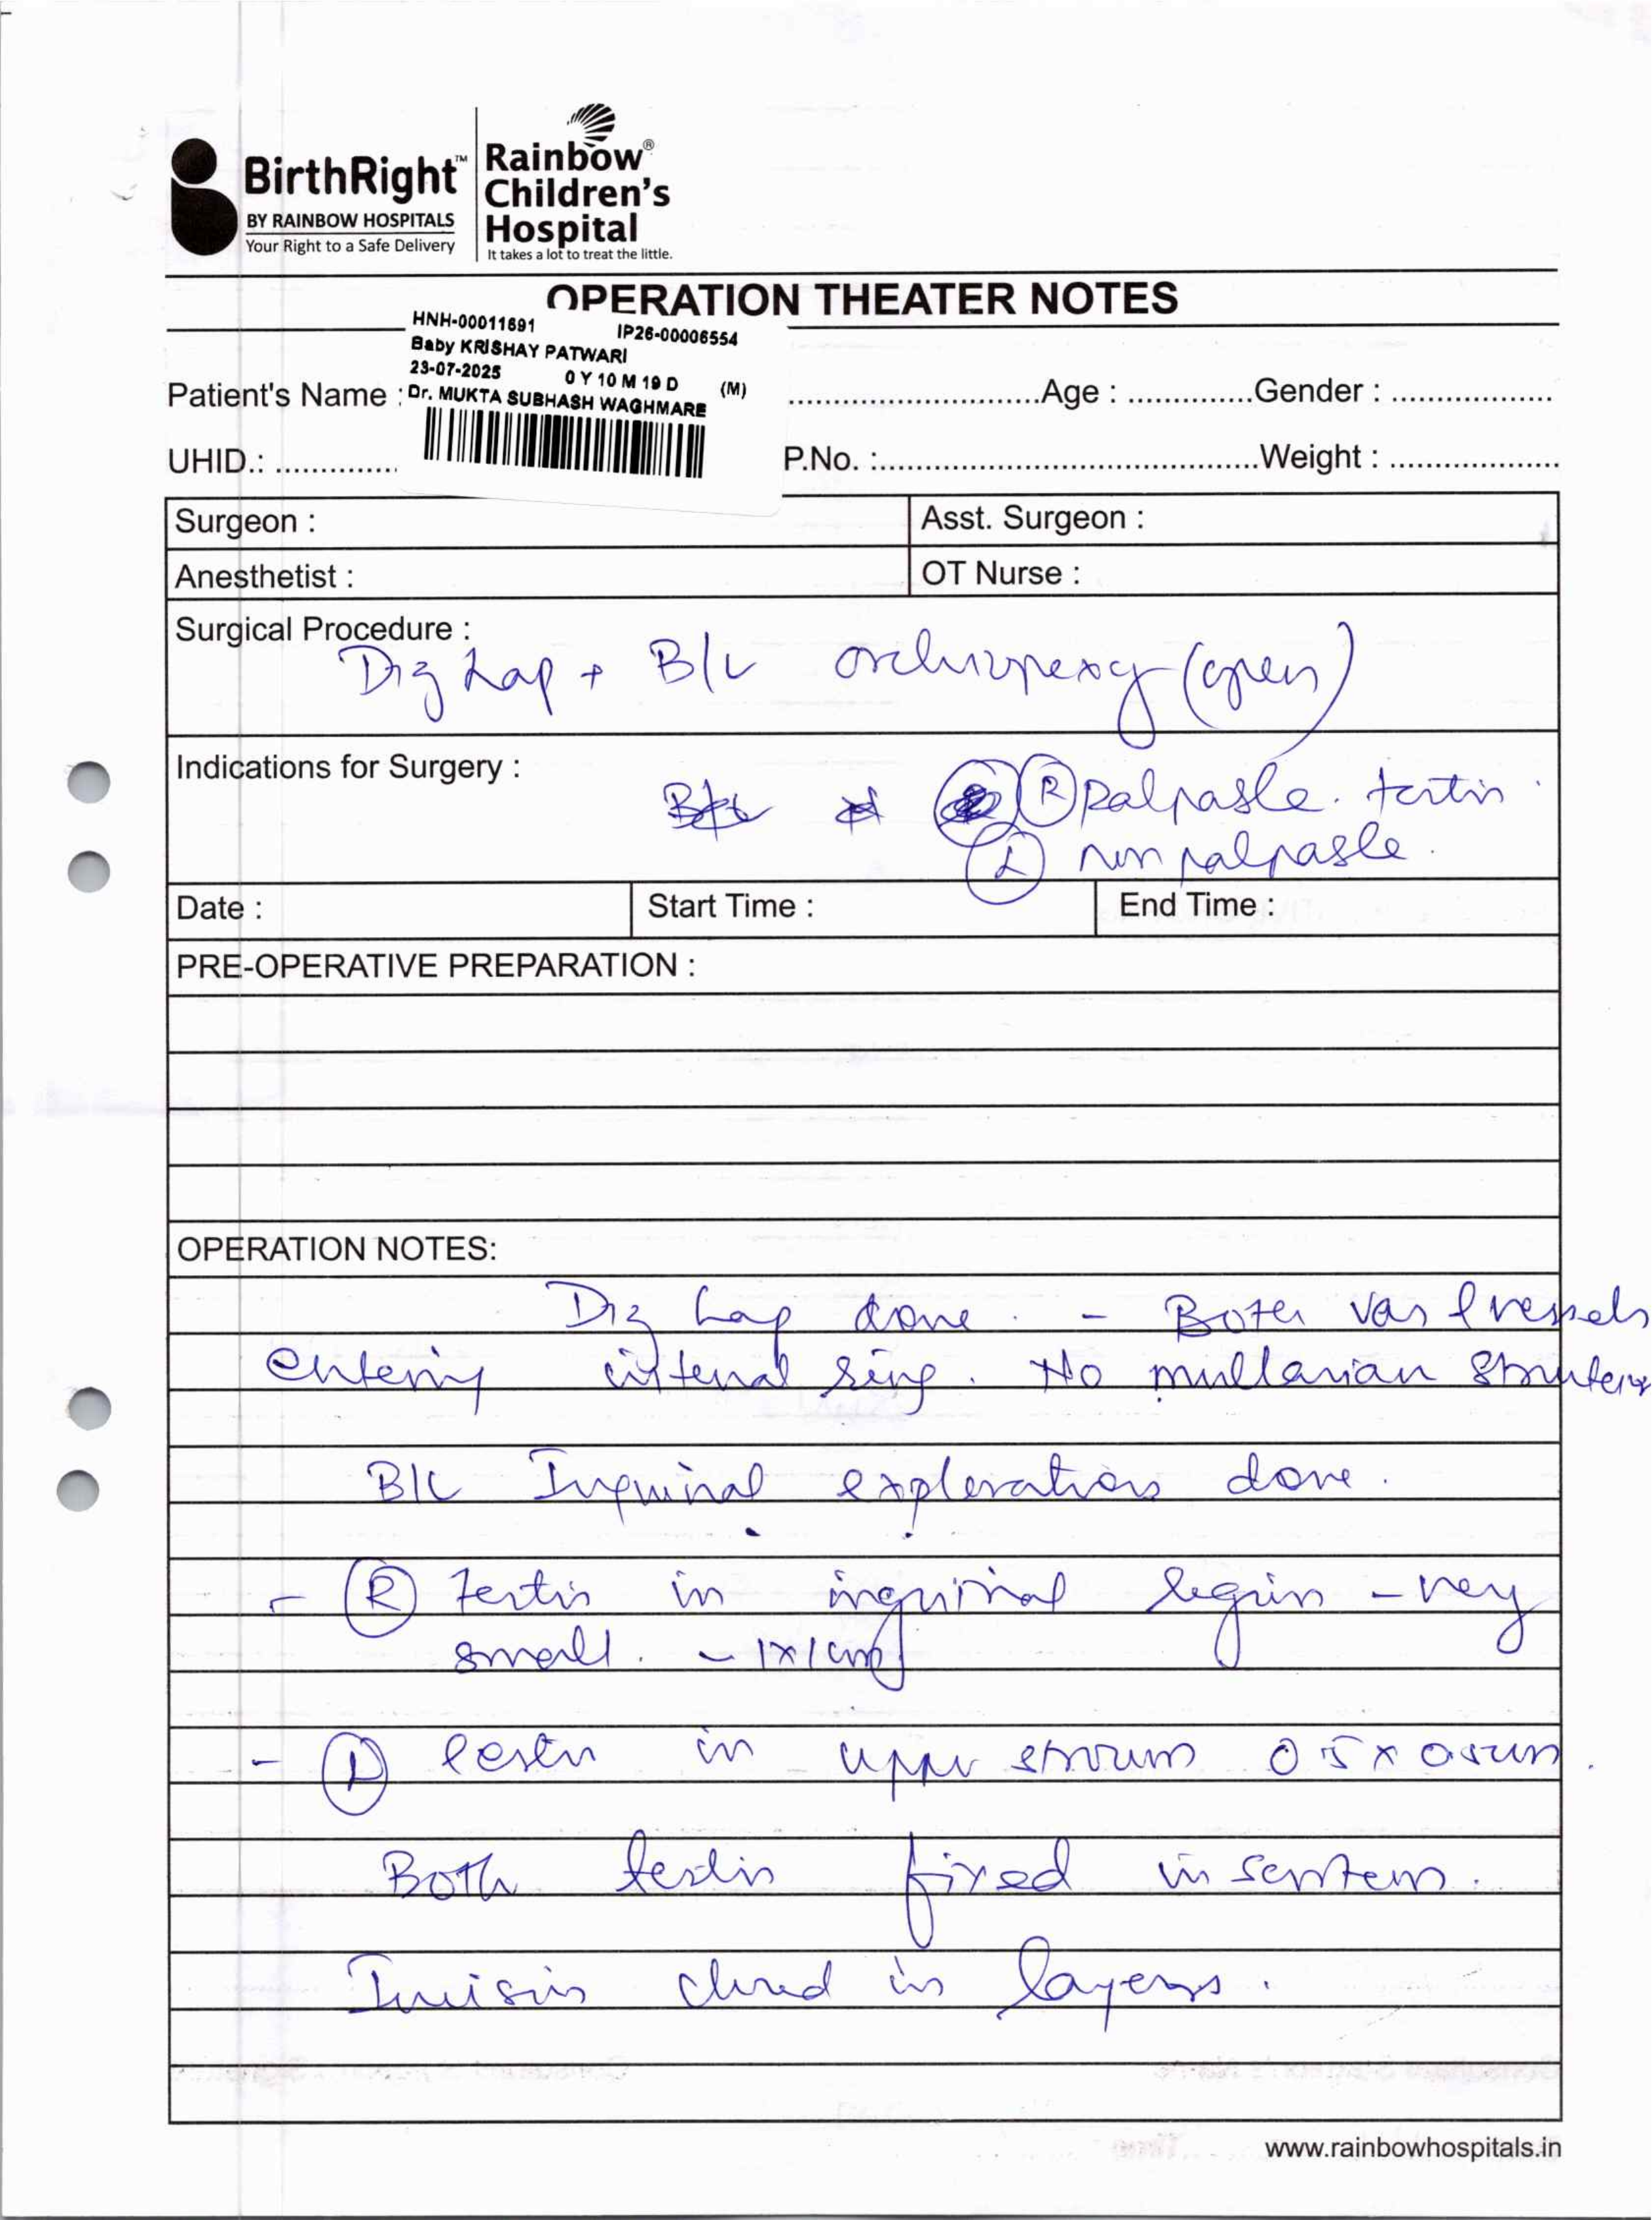 BirthRight™
BY RAINBOW HOSPITALS
Your Right to a Safe Delivery
Rainbow®
Children's
Hospital
It takes a lot to treat the little.
OPERATION THEATER NOTES
HNH-00011691 IP26-00006554
Baby KRISHAY PATWARI
23-07-2025 0 Y 10 M 19 D (M)
Dr. MUKTA SUBHASH WAGHMARE
Patient's Name : Age : Gender :
UHID.: P.No. : Weight :
Surgeon : Asst. Surgeon :
Anesthetist : OT Nurse :
Surgical Procedure :
Diag Lap + B/L orchiopexy (open)
Indications for Surgery :
(R) palpable testis.
(L) non palpable.
Date : Start Time : End Time :
PRE-OPERATIVE PREPARATION :
OPERATION NOTES:
Diag Lap done. - Both vas & vessels
entering internal ring. No mullerian
B/L Inguinal exploration done.
- (R) testis in inguinal region - very
small. ~ 1x1cm
- (L) testis in upper scrotum 0.5 x 0.5cm.
Both testis fixed in scrotum.
Incision closed in layers.
www.rainbowhospitals.in